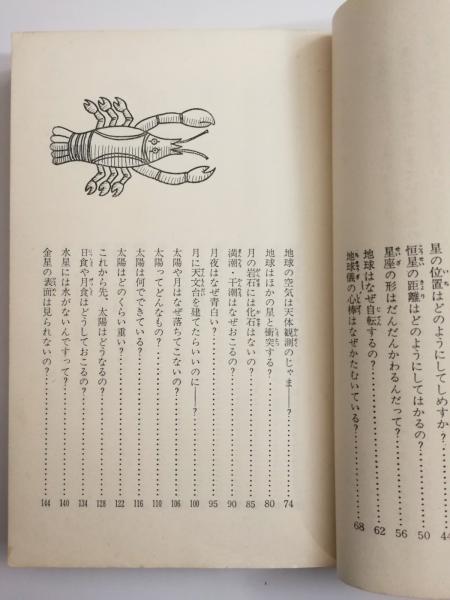 星の位置はどのようにしてしめすか?……44
恒星の距離はどのようにしてはかるの?……50
星座の形はだんだんかわるんだって?……56
地球はなぜ自転するの?……62
地球儀の心棒はなぜかたむいている?……68
地球の空気は天体観測のじゃま——?……74
地球はほかの星と衝突する?……80
月の岩石には化石はないの?……85
満潮・干潮はなぜおこるの?……90
月夜はなぜ青白い?……95
月に天文台を建てたらいいのに——?……100
太陽や月はなぜ落ちてこないの?……106
太陽ってどんなもの?……110
太陽は何でできている?……116
太陽はどのくらい重い?……122
これから先、太陽はどうなるの?……128
日食や月食はどうしておこるの?……134
水星には水がないんですって?……140
金星の表面は見られないの?……144